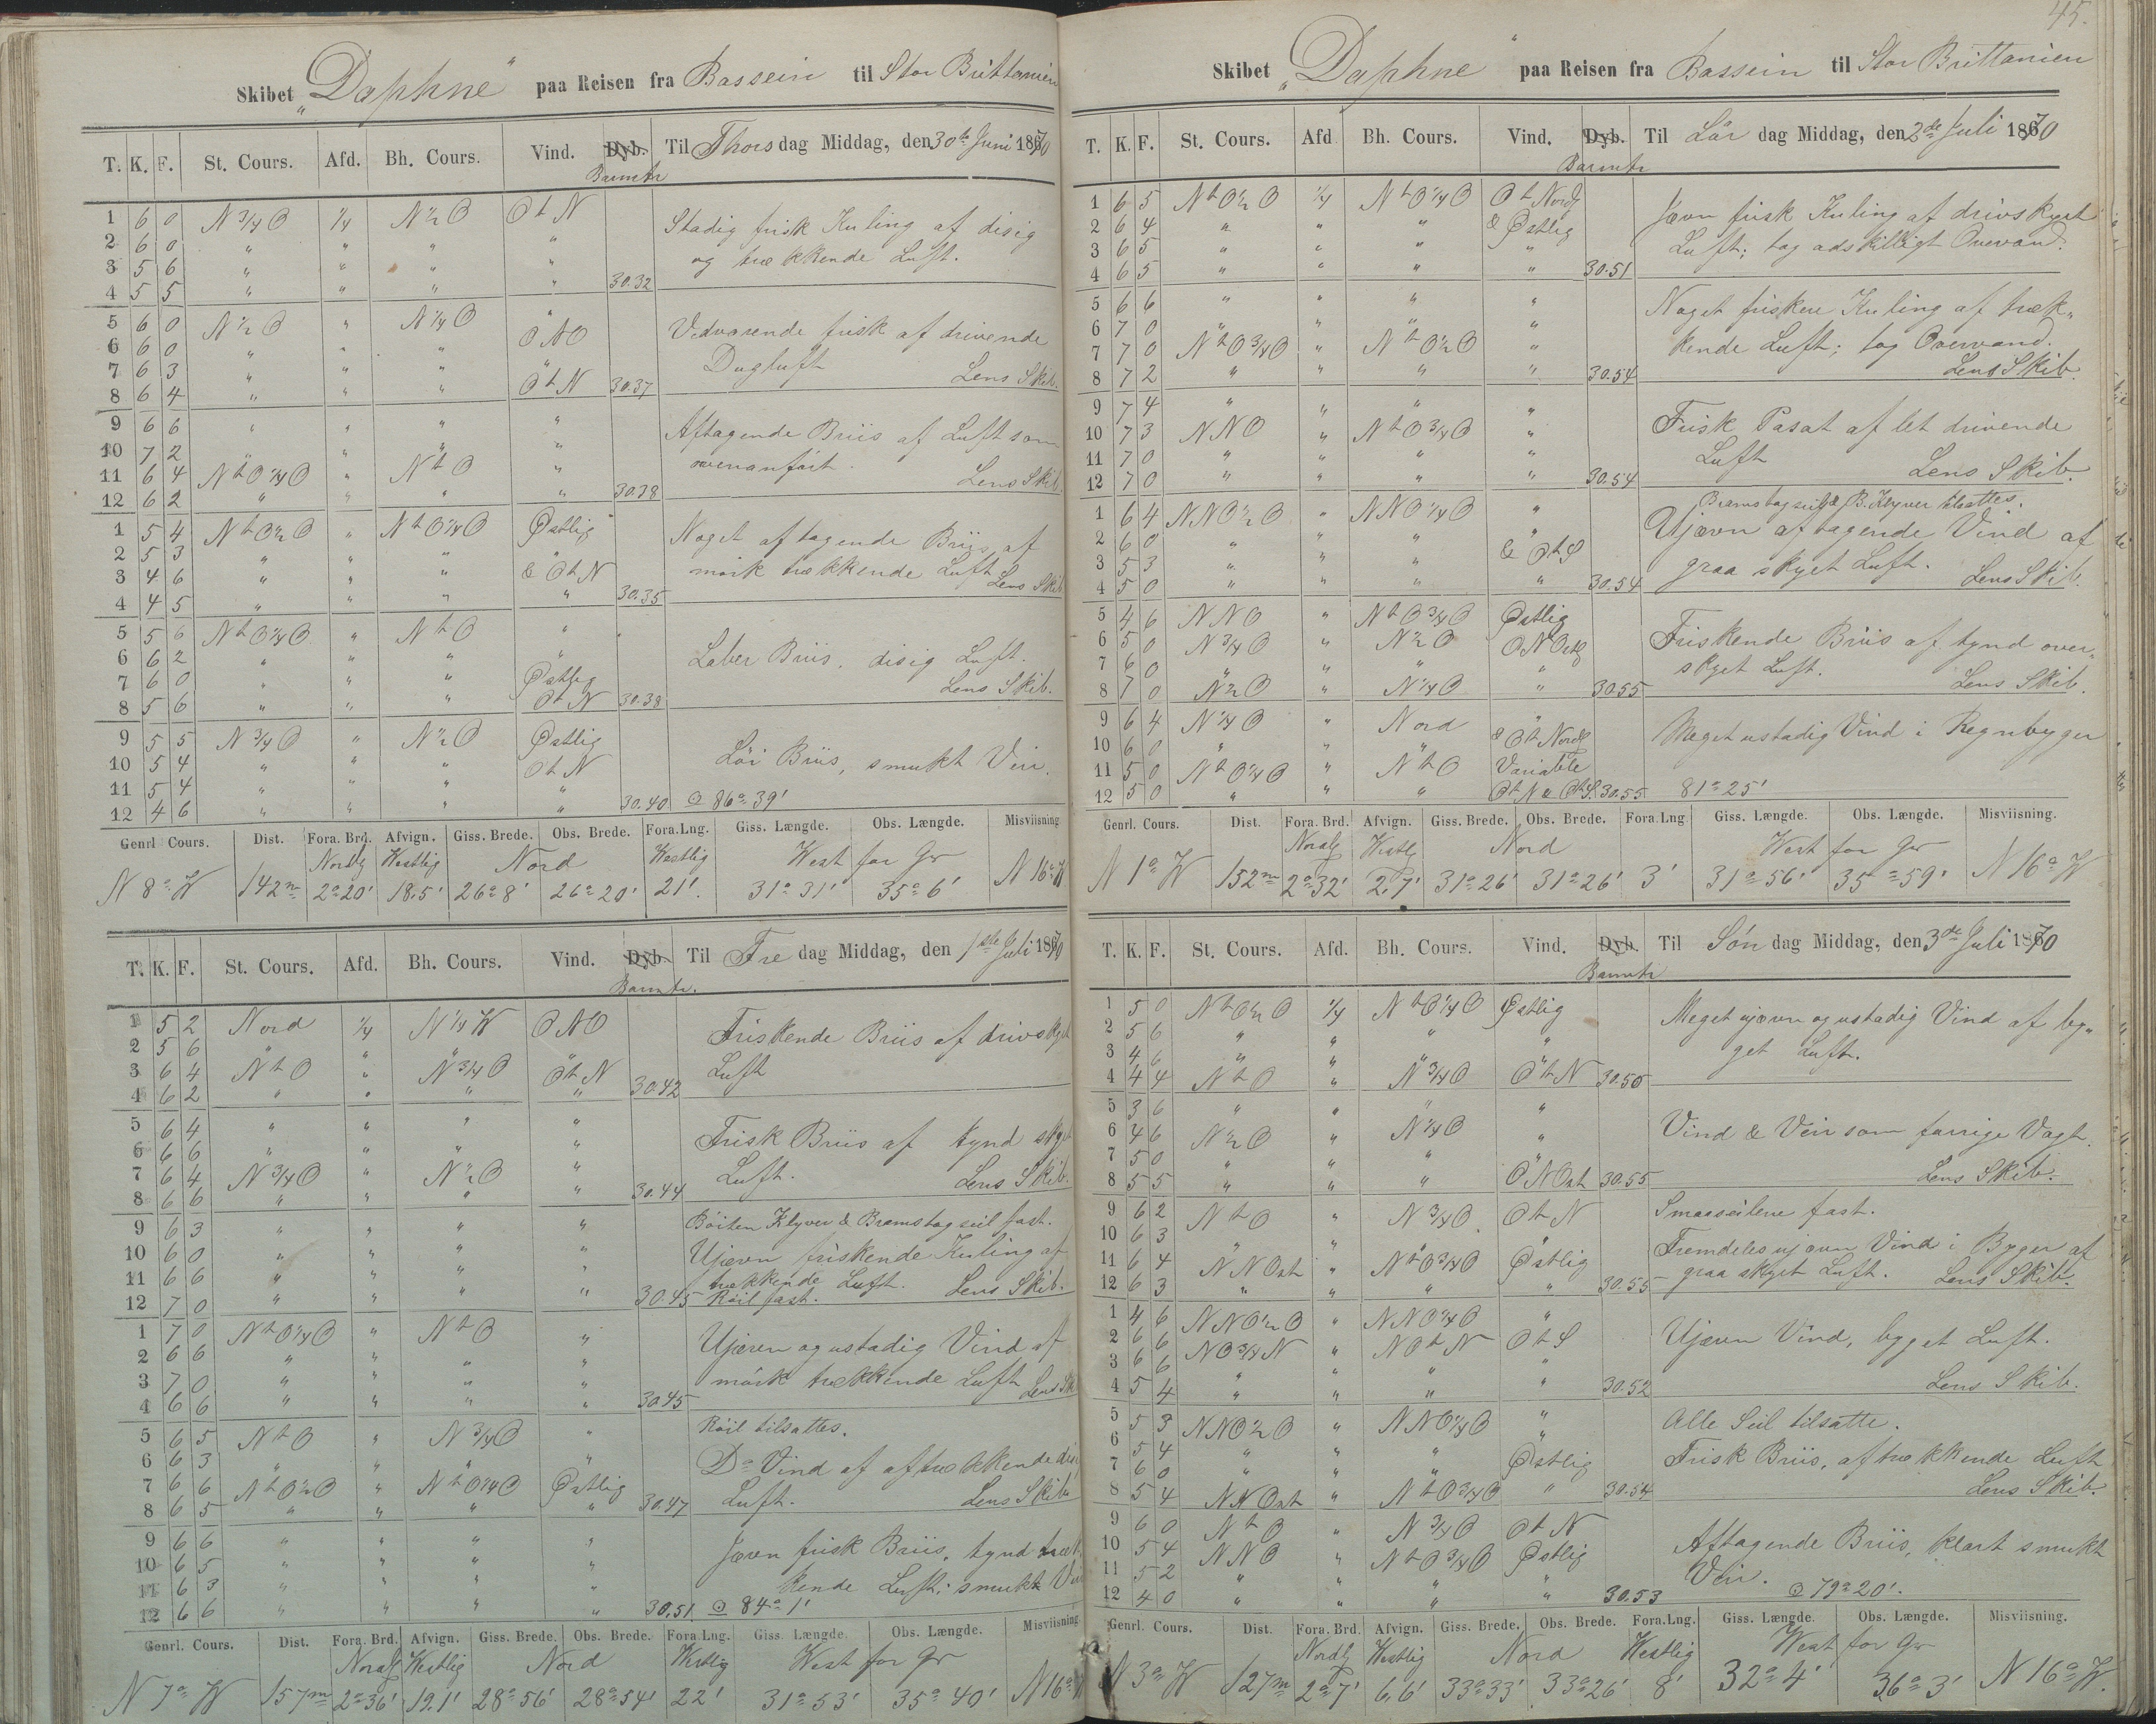 Skibet „Daphne“ paa Reisen fra Bassein til Stor Brittanien
T. K. F. St. Cours. Afd. Bh. Cours. Vind. Dyb. Til Thorsdag Middag, den 30te Juni 1870
Barmtr
1 6 0 N 3/4 O 1/4 N 1/2 O O t N Stadig frisk Kuling af disig
2 6 0 " " " " og trækkende Luft.
3 5 6 " " " "
4 5 5 " " " " 30.32
5 6 0 N 1/2 O " N 1/4 O " Vedvarende frisk af drivende
6 6 0 " " " O N O Dugluft
7 6 3 " " " " Lens Skib.
8 6 4 " " " O t N 30.37
9 6 6 " " " " Aftagende Briis af Luft som
10 7 2 " " " " ovenanført.
11 6 4 N t O 1/4 O " N t O " Lens Skib
12 6 2 " " " " 30.38
1 5 4 N t O 1/2 O " N t O 1/4 O Østlig Noget aftagende Briis af
2 5 3 " " " " mørk trækkende Luft
3 4 6 " " " & O t N Lens Skib
4 4 5 " " " " 30.35
5 5 6 N t O 1/4 O " N t O "
6 6 2 " " " " Laber Briis, disig Luft.
7 6 0 " " " Østlig Lens Skib.
8 5 6 " " " O t N 30.38
9 5 5 N 3/4 O " N 1/2 O Østlig Løi Briis, smukt Veir.
10 5 4 " " " O t N
11 5 4 " " " "
12 4 6 " " " " 30.40 ⊙ 86° 39'
Genrl Cours. Dist. Fora. Brd. Afvign. Giss. Brede. Obs. Brede. Fora. Lng. Giss. Længde. Obs. Længde. Misviisning
Nordlg Westlig Nord Westlig West for Gr
N 8° W 142 m 2° 20' 18.5' 26° 8' 26° 20' 21' 31° 31' 35° 6' N 16° W
T. K. F. St. Cours. Afd. Bh. Cours. Vind. Dyb. Til Fredag Middag, den 1ste Juli 1870
Barmtr.
1 5 2 Nord 1/4 N 1/4 W O N O Friskende Briis af drivskyet
2 5 6 " " " " Luft
3 6 4 N t O " N 3/4 O O t N
4 6 2 " " " " 30.42
5 6 4 " " " " Frisk Briis af tynd skyet
6 6 6 " " " " Luft.
7 6 4 N 3/4 O " N 1/2 O " Lens Skib.
8 6 6 " " " " 30.44
9 6 3 " " " " Klyver & Bramstagseil fast.
10 6 0 " " " " Ujævn friskende Kuling af
11 6 6 " " " " trækkende Luft. Lens Skib.
12 7 0 " " " " 30.45 Røil fast.
1 7 0 N t O 1/4 O " N t O " Ujævn og ustadig Vind af
2 6 6 " " " " mørk trækkende Luft
3 7 0 " " " "
4 6 6 " " " " 30.45
5 6 5 N t O " N 3/4 O " Røil tilsattes.
6 6 3 " " " " Do Vind af
7 6 6 N t O 1/2 O " N t O 1/4 O Østlig Luft. Lens Skib
8 6 5 " " " " 30.47
9 6 6 " " " " Jævn frisk Briis, tynd træk
10 6 5 " " " " kende Luft; smukt
11 6 3 " " " "
12 6 6 " " " " 30.51 ⊙ 84° 1'
Genrl. Cours. Dist. Fora. Brd. Afvign. Giss. Brede. Obs. Brede. Fora. Lng. Giss. Længde. Obs. Længde. Misviisning
Nordl Westlig Nord Westlig West for Gr
N 7° W 157 m 2° 36' 19.1' 28° 56' 28° 54' 22' 31° 53' 35° 40' N 16° W
45.
Skibet „Daphne“ paa Reisen fra Bassein til Stor Brittanien
T. K. F. St. Cours. Afd Bh. Cours. Vind. Dyb. Til Lørdag Middag, den 2de Juli 1870
Barmtr
1 6 5 N t O 1/2 O 1/4 N t O 1/4 O O t Nordl Jævn frisk Kuling af drivskyet
2 6 4 " " " & Østlig Luft; tog adskilligt Overvand.
3 6 5 " " " "
4 6 5 " " " " 30.51
5 6 6 " " " " Noget friskere Kuling af træk„
6 7 0 " " " " kende Luft; tog Overvand.
7 7 0 N t O 3/4 O " N t O 1/2 O " Lens Skib.
8 7 2 " " " " 30.54
9 7 4 " " " " Frisk Pasat af let drivende
10 7 3 N N O " N t O 3/4 O " Luft
11 7 0 " " " " Lens Skib.
12 7 0 " " " " 30.54
Bramstagseil & B. Klyver tilsattes.
1 6 4 N N O 1/2 O " N N O 1/4 O " Ujævn aftagende Vind af
2 6 0 " " " " graa skyet Luft.
3 5 3 " " " & O t S Lens Skib.
4 5 0 " " " " 30.54
5 4 6 N N O " N t O 3/4 O Østlig Friskende Briis af tynd over„
6 5 0 N 3/4 O " N 1/2 O skyet Luft.
7 6 0 " " " " Lens Skib.
8 7 0 N 1/2 O " N 1/4 O " 30.55
9 6 4 N 1/4 O " Nord " Meget ustadig Vind i Regnbyger
10 6 0 " " " & O t Nordl
11 5 0 N t O 1/4 O " N t O Variable
12 5 0 " " " O t N & O t S. 30.55 81° 25'
Genrl. Cours. Dist. Fora. Brd. Afvign. Giss. Brede. Obs. Brede. Fora. Lng. Giss. Længde. Obs. Længde. Misviisning.
Nordl Westl Nord West for Gr
N 1° W 152 m 2° 32' 2.7' 31° 26' 31° 26' 3' 31° 56' 35° 59' N 16° W
T. K. F. St. Cours. Afd. Bh. Cours. Vind. Dyb. Til Søndag Middag, den 3de Juli 1870
Barmtr
1 5 0 N t O 1/2 O 1/4 N t O 1/4 O Østlig Meget ujævn og ustadig Vind af by„
2 5 6 " " " " get Luft.
3 4 6 " " " "
4 4 4 N t O " N 3/4 O O t N 30.50
5 3 6 " " " "
6 4 6 N 1/2 O " N 1/4 O " Vind & Veir som forrige Vagt.
7 5 0 " " " "
8 5 5 " " " O N Ost 30.55 Lens Skib.
9 6 2 N t O " N 3/4 O O t N Smaaseilene fast.
10 6 3 " " " " Fremdeles ujævn Vind i Byger af
11 6 4 N N Ost " N t O 3/4 O Østlig graa skyet Luft. Lens Skib.
12 6 3 " " " " 30.55
1 4 6 N N O 1/2 O " N N O 1/4 O " Ujævn Vind, byget Luft.
2 6 6 N O 3/4 N " N O t N O t S
3 6 6 " " " "
4 5 4 " " " " 30.52 Lens Skib.
5 5 3 N N O 1/2 O " N N O 1/4 O " Alle Seil tilsatte.
6 5 4 " " " " Frisk Briis, af trækkende Luft
7 6 0 " " " Østlig Lens Skib.
8 5 4 N N Ost " N t O 3/4 O " 30.54
9 6 0 N t O " N 3/4 O O t N Aftagende Briis, klart smukt
10 5 4 N N O " N t O 3/4 O Østlig Veir.
11 5 2 " " " "
12 4 0 " " " " 30.53 ⊙ 79° 20'.
Genrl. Cours. Dist. Fora. Brd. Afvign. Giss. Brede. Obs. Brede. Fora. Lng. Giss. Længde. Obs. Længde. Misviisning.
Nordlg Westlig Nord Westlig West for Gr
N 3° W 127 m 2° 7' 6,6' 33° 33' 33° 26' 8' 32° 4' 36° 3' N 16° W.